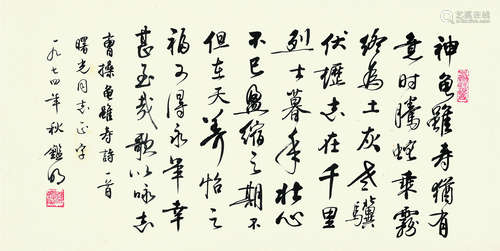 神龜雖寿猶有
竟时騰蛇乘霧
終為土灰老驥
伏櫪志在千里
烈士暮年壮心
不已盈縮之期不
但在天养怡之
福可得永年幸
甚至哉歌以咏志
曹操龜雖寿詩一首
曙光同志正字
一九七四年秋鑑明